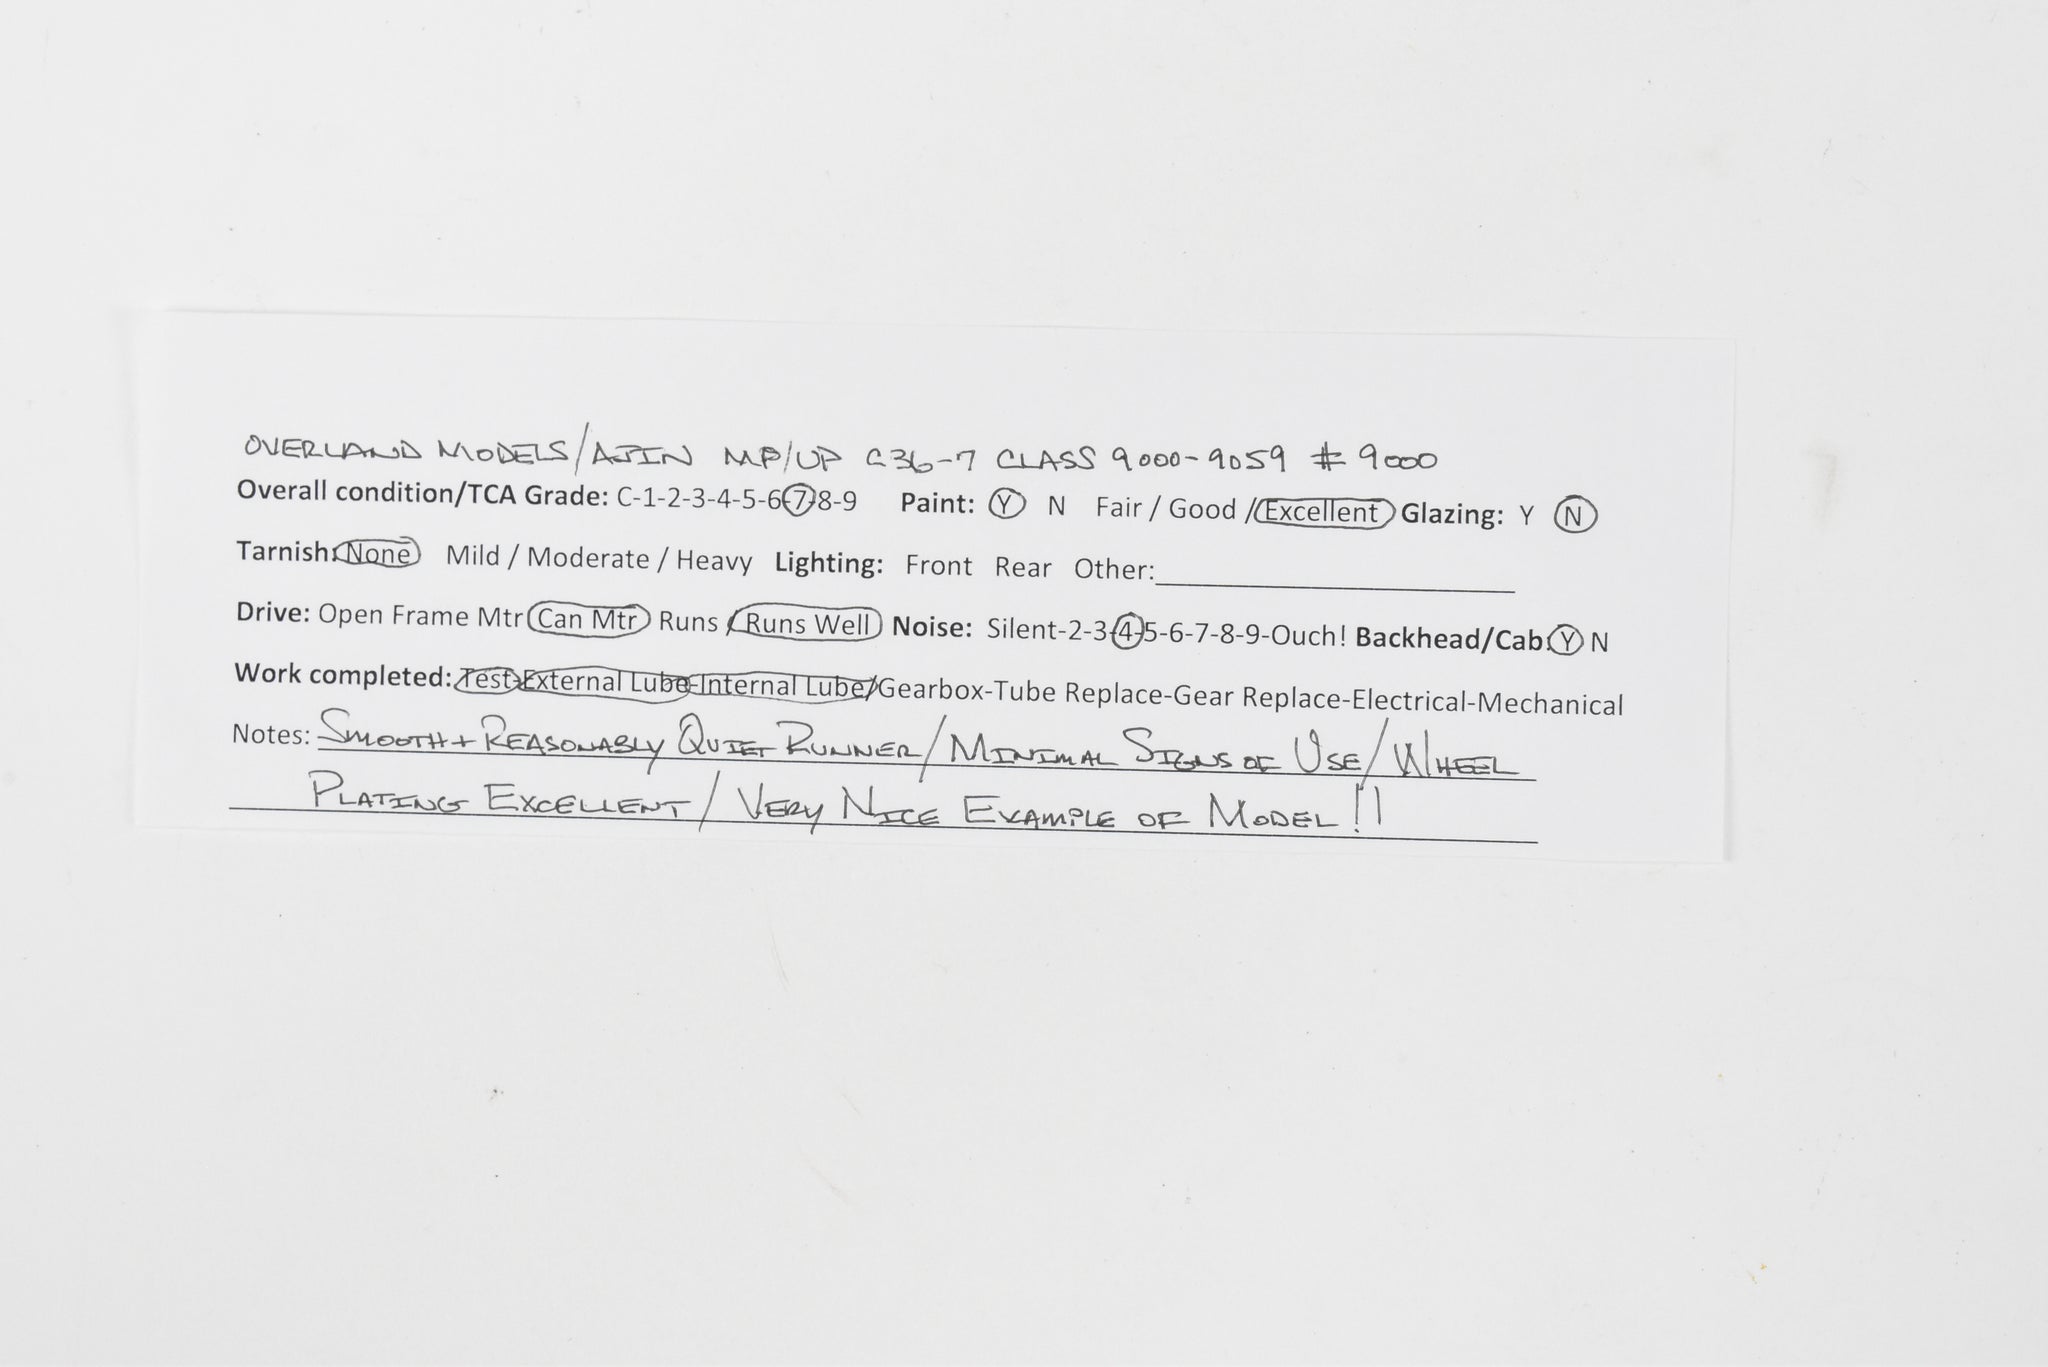 OVERLAND MODELS/AJIN MP/UP C36-7 CLASS 9000-9059 # 9000
Overall condition/TCA Grade: C-1-2-3-4-5-6-7-8-9 Paint: Y N Fair / Good / Excellent Glazing: Y N
Tarnish: None Mild / Moderate / Heavy Lighting: Front Rear Other:
Drive: Open Frame Mtr Can Mtr Runs / Runs Well Noise: Silent-2-3-4-5-6-7-8-9-Ouch! Backhead/Cab: Y N
Work completed: Test-External Lube-Internal Lube/Gearbox-Tube Replace-Gear Replace-Electrical-Mechanical
Notes: SMOOTH + REASONABLY QUIET RUNNER/MINIMAL SIGNS OF USE/WHEEL
PLATING EXCELLENT/VERY NICE EXAMPLE OF MODEL!!